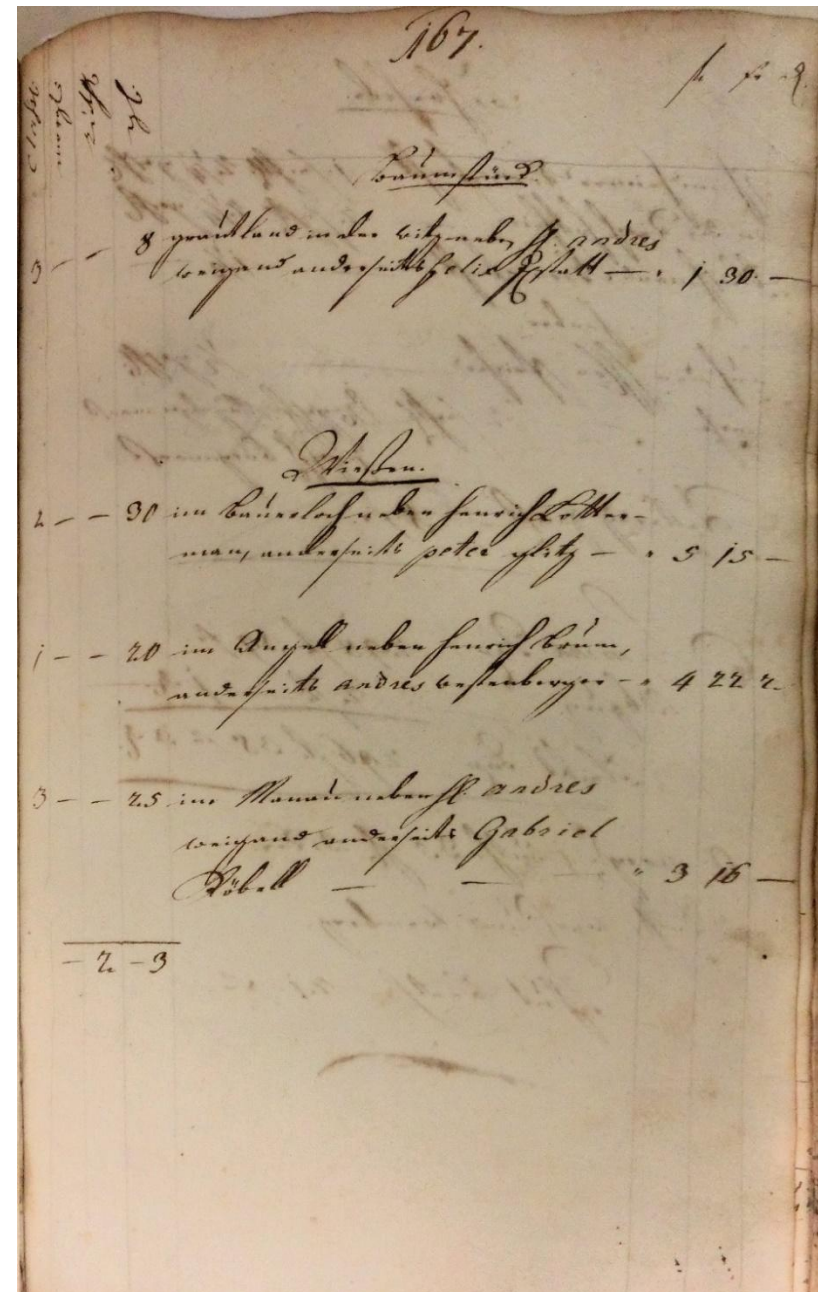 167.
Baumstück
3 - - 8 grautland in der witz neben H. andres
weigand anderseits felix - " 1 30 -
Wiesen.
2 - - 30 im bauerloch neben henrich Kotter-
man, anderseits peter glitz - " 5 15 -
1 - - 20 im Angell neben henrich braun,
anderseits andres westenberger - " 4 22 2
3 - - 25 im neben H. andres
weigand anderseits Gabriel
Röbell - - " 3 16 -
- 2 - 3